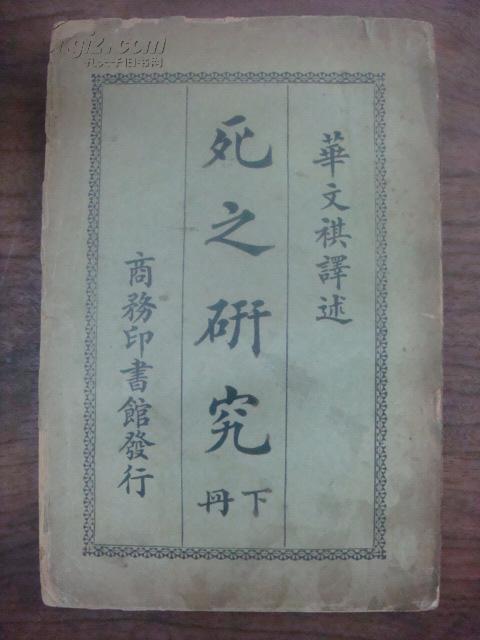 華文祺譯述
死之研究
下冊
商務印書館發行
孔夫子旧书网